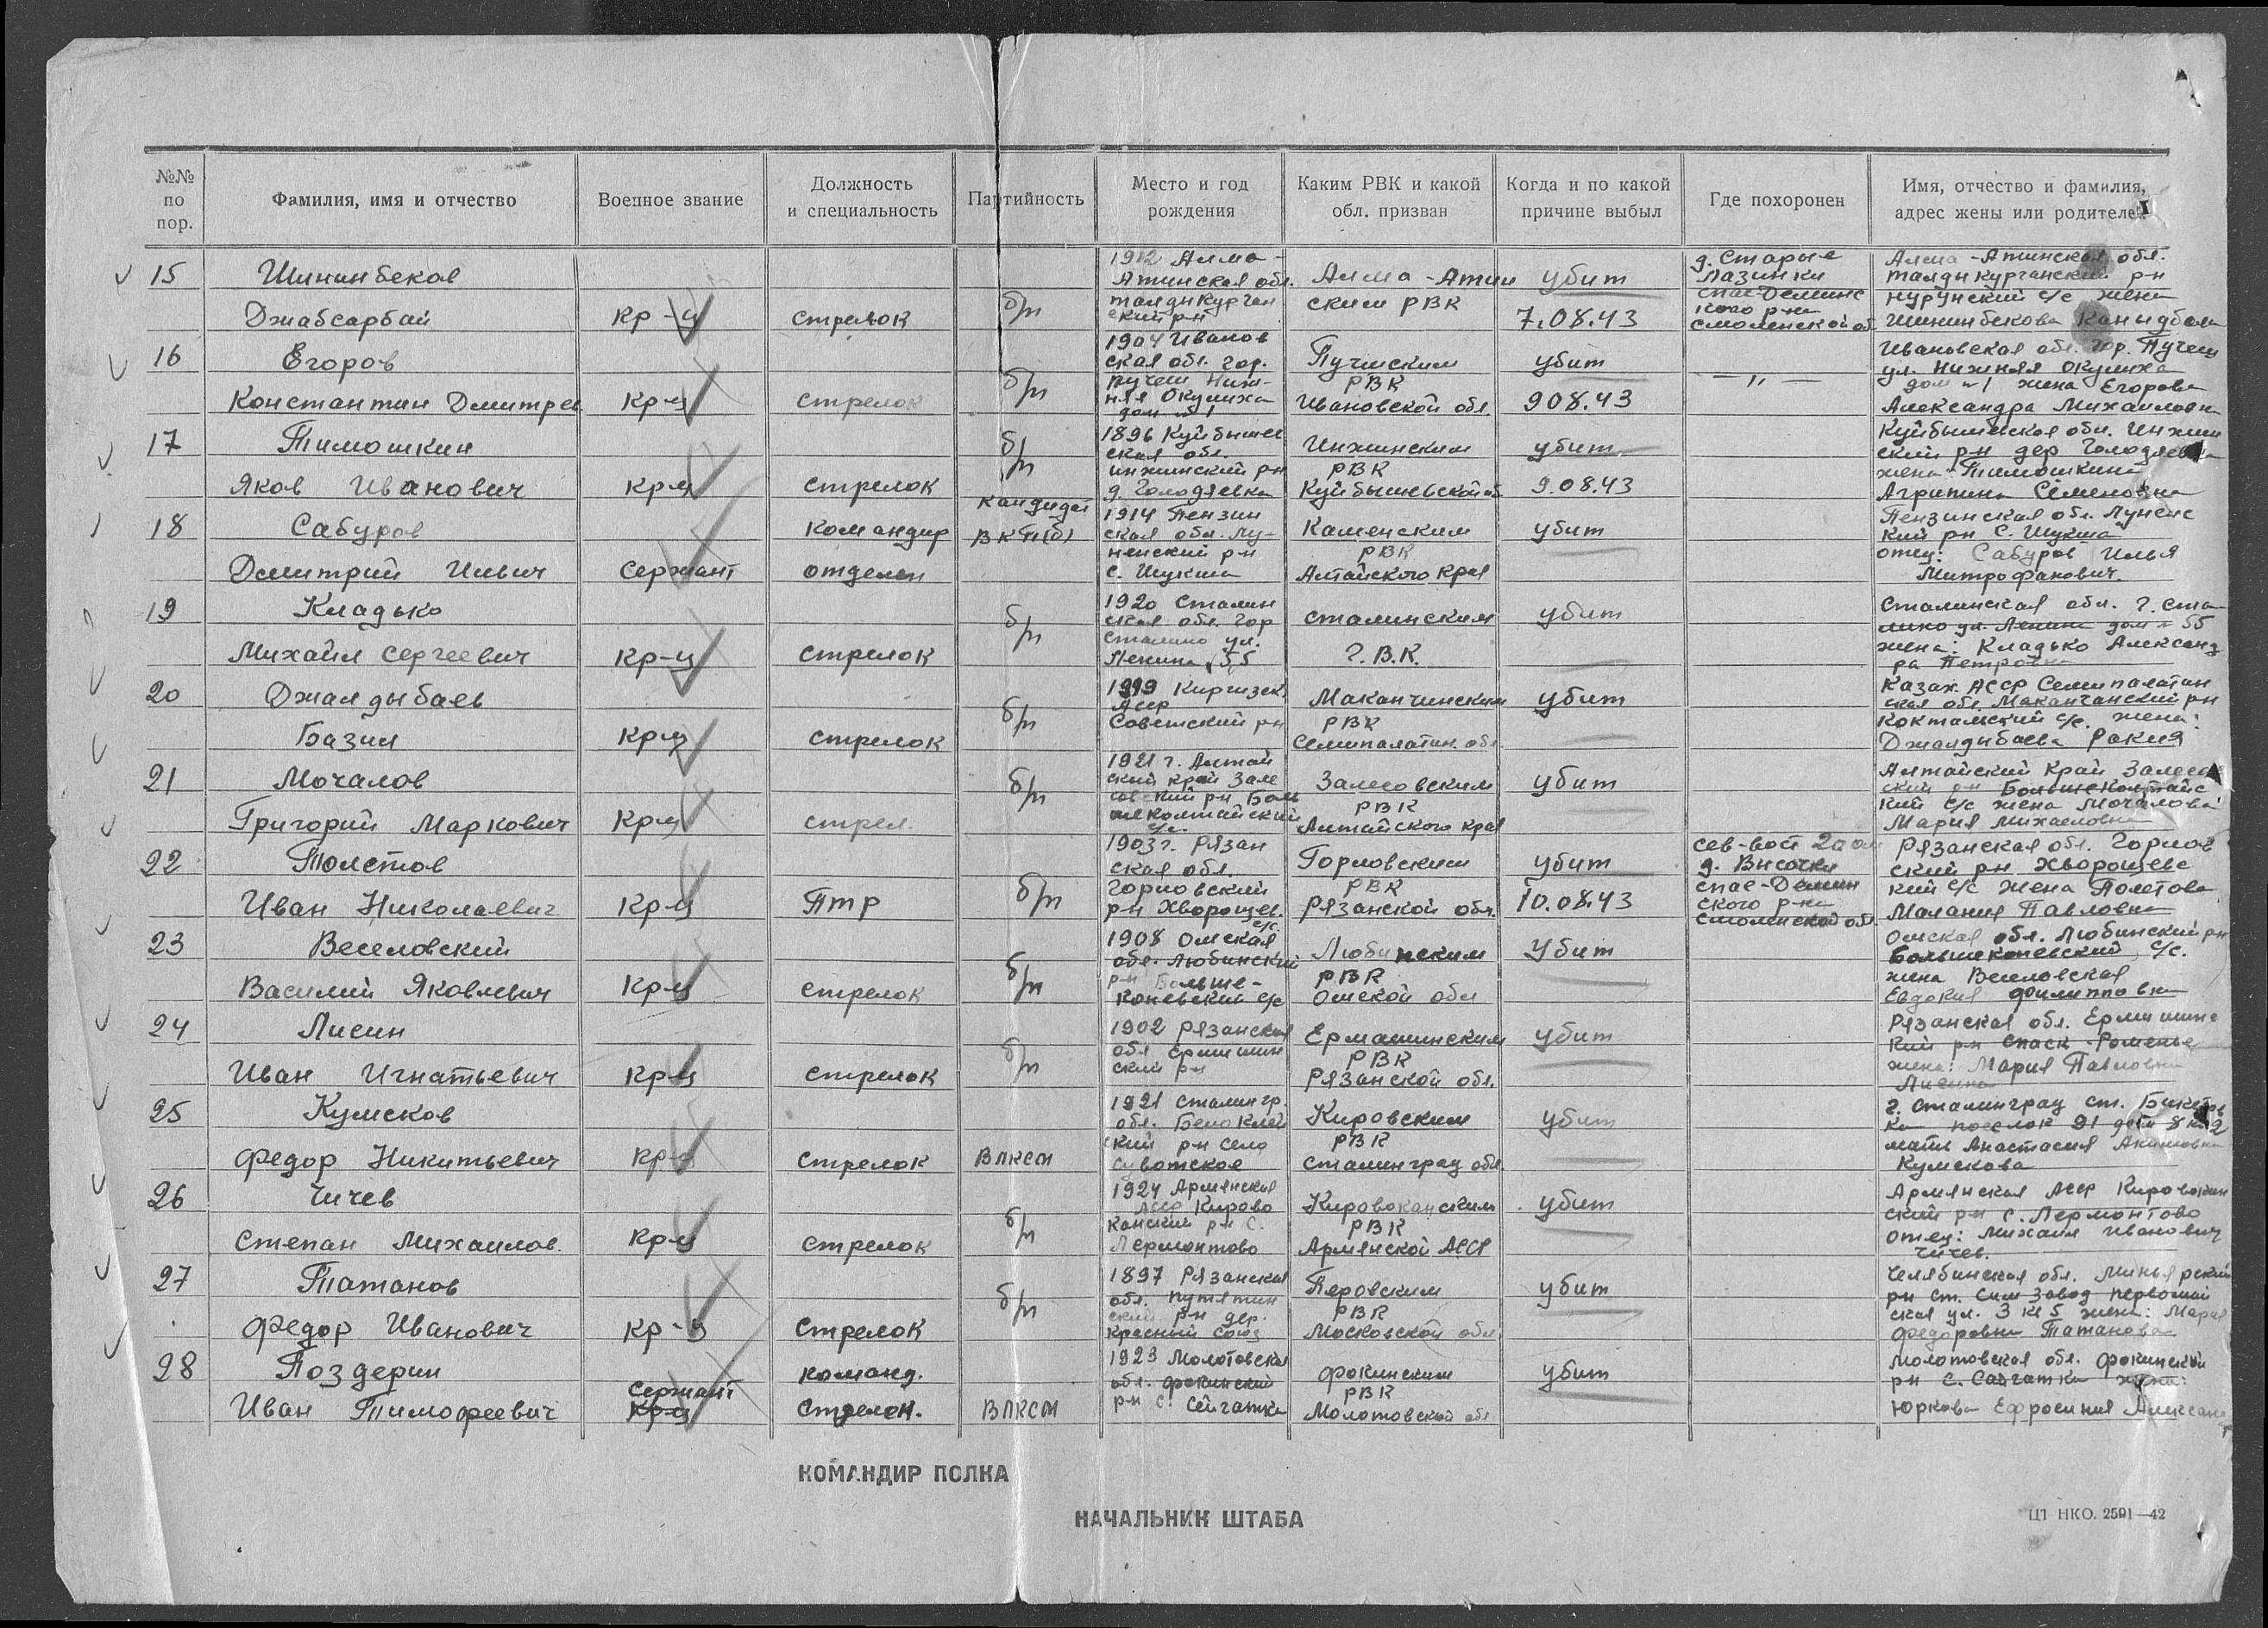 №№ по пор.
Фамилия, имя и отчество
Военное звание
Должность и специальность
Партийность
Место и год рождения
Каким РВК и какой обл. призван
Когда и по какой причине выбыл
Где похоронен
Имя, отчество и фамилия, адрес жены или родителей
15
Шининбеков
Джабсарбай
кр-ц
стрелок
б/п
1912 Алма-
Атинская обл.
талдыкурган
ский р-н
Алма-Атин
ским РВК
убит
7.08.43
д. Старые
Лазинки
спас-Деминс
кого р-на
Смоленской об
Алма-Атинская обл.
Талдыкурганский р-н
с/с жена
Шининбекова
16
Егоров
Константин Дмитрев
кр-ц
стрелок
б/п
1904 Иванов
ская обл. гор.
Пучеш Ниж-
няя Окулиха
дом №1
Пучешским
РВК
Ивановской обл.
убит
9 08.43
— „ —
Ивановская обл. гор. Пучеш
ул. Нижняя Окулиха
дом №1 жена Егорова
Александра Михайловна
17
Тимошкин
Яков Иванович
кр-ц
стрелок
б/п
1896 Куйбышев
ская обл.
инжинский р-н
д. Голодяевка
Инжинским
РВК
Куйбышевской об
убит
9.08.43
Куйбышевская обл. Инжин
ский р-н дер Голодяевка
жена Тимошкина
Агрипина Семеновна
18
Сабуров
Дмитрий Ильич
Сержант
командир
отделен
кандидат
ВКП(б)
1914 Пензин
ская обл. Лу-
ненский р-н
с. Шукша
Каменским
РВК
Алтайского края
убит
Пензинская обл. Луненс
кий р-н С. Шукша
отец: Сабуров Илья
Митрофанович.
19
Кладько
Михаил Сергеевич
кр-ц
стрелок
б/п
1920 Сталин
ская обл. гор
Сталино ул.
Ленина 55
Сталинским
Г.В.К.
убит
Сталинская обл. г. Ста
лино ул. Ленина дом № 55
жена: Кладько Александ
ра Петровна
20
Джалдыбаев
Базил
кр-ц
стрелок
б/п
1919 Киргизск.
АССР
Советский р-н
Маканчинским
РВК
Семипалатин. обл
убит
Казах. АССР Семипалатин
ская обл. Маканчанский р-н
Коктамский с/с. жена:
Джалдыбаева Ракия
21
Мочалов
Григорий Маркович
кр-ц
стрел.
б/п
1921 г. Алтай
ский край Зале
совский р-н Боль
шеколтайский
с/с.
Залесовским
РВК
Алтайского края
убит
Алтайский край Залесов
ский р-н Большеколтайс
кий с/с жена Мочалова
Мария Михайловна
22
Толстов
Иван Николаевич
кр-ц
Птр
б/п
1903 г. Рязан
ская обл.
Горловский
р-н Хворощев.
с/с.
Горловским
РВК
Рязанской обл.
убит
10.08.43
сев-вост
д. Височки
спас-Демин
ского р-на
Смоленской обл.
Рязанская обл. Горлов
ский р-н Хворощевс
кий с/с жена Толстова
Малания Павловна
23
Веселовский
Василий Яковлевич
кр-ц
стрелок
б/п
1908 Омская
обл. Любинский
р-н Больше-
каневский с/с
Любинским
РВК
Омской обл
Убит
Омская обл. Любинский р-н
Большеканевский с/с.
жена Веселовская
Евдокия Филипповна
24
Лисин
Иван Игнатьевич
кр-ц
стрелок
б/п
1902 Рязанская
обл Ермишин
ский р-н
Ермашинским
РВК
Рязанской обл.
убит
Рязанская обл. Ермишинс
кий р-н
жена: Мария Павловна
Лисина
25
Кумсков
Федор Никитьевич
кр-ц
стрелок
ВЛКСМ
1921 Сталингр.
обл. Бело Клей
кий р-н село
Суводское
Кировским
РВК
Сталинград обл
убит
г. Сталинград ст. Бикетов
ка поселок 91 дом 8 кв 2
мать Анастасия Акимовна
Кумскова
26
Чичев
Степан Михайлов.
кр-ц
стрелок
б/п
1924 Армянская
АССР Кирово
канский р-н С.
Лермонтово
Кироваканским
РВК
Армянской АССР
убит
Армянская АССР Кировакан
ский р-н с. Лермонтово
отец: Михаил Иванович
Чичев.
27
Татанов
Федор Иванович
кр-ц
Стрелок
б/п
1897 Рязанская
обл. Путятин
ский р-н дер.
Красный Союз
Перовским
РВК
Московской обл
убит
Челябинская обл. Миньярский
р-н ст. Сим завод Первомай
ская ул. 3 кв 5 жена: Мария
Федоровна Татанова
28
Поздерин
Иван Тимофеевич
Сержант
кр-ц
команд.
Стрелк.
ВЛКСМ
1923 Молотовская
обл. Фокинский
р-н с. Сайгатка
Фокинским
РВК
Молотовской обл
убит
Молотовская обл. Фокинский
р-н с. Сайгатка жена:
Юркова Ефросиния Александ
КОМАНДИР ПОЛКА
НАЧАЛЬНИК ШТАБА
ЦТ НКО. 2591—42